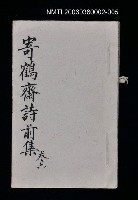 NMTL20080380002-005
寄鶴齋詩前集
卷之六